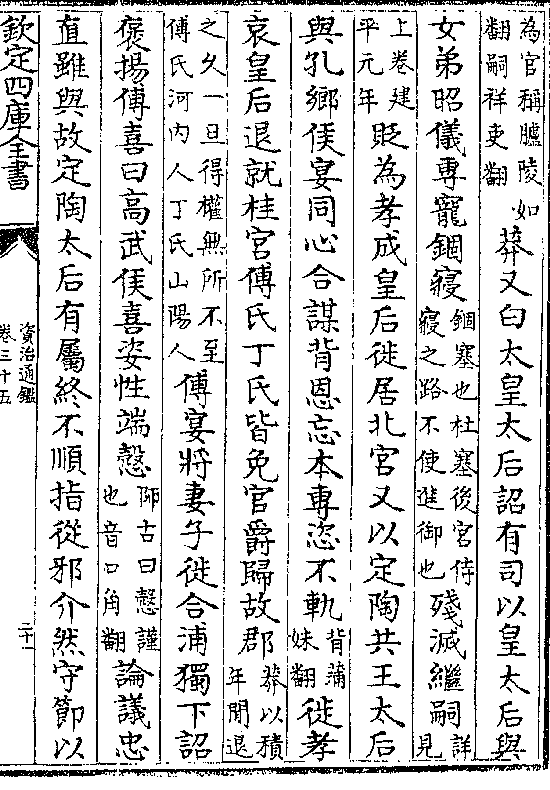 為官稱臚陵如
翻嗣祥吏翻
莽又白太皇太后詔有司以皇太后與
女弟昭儀專寵錮寢
錮塞也杜塞後宮侍
寢之路不使進御也
殘滅繼嗣
詳見
上卷建
平元年
貶為孝成皇后徙居北宮又以定陶共王太后
與孔鄉侯宴同心合謀背恩忘本專恣不軌
背蒲
妹翻
徙孝
哀皇后退就桂宮傅氏丁氏皆免官爵歸故郡
莽以積年閒退
之久一旦得權無所不至
傅氏河内人丁氏山陽人
傅宴將妻子徙合浦獨下詔
褒揚傅喜曰高武侯喜姿性端慤
師古曰慤謹
也音口角翻
論議忠
直雖與故定陶太后有屬終不順指從邪介然守節以
欽定四庫全書
資治通鑑
卷三十五
二十一